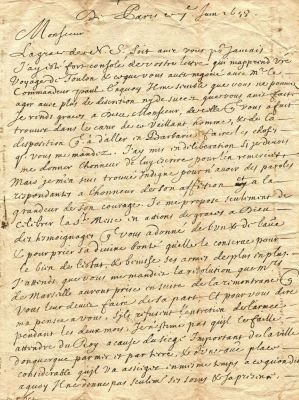 De Paris ce 7 Juin 1658
Monsieur
La grace de N. S. soit avec vous po.r jamais
J'ay esté fort consolé de vostre lettre qui m'apprend v.re
voyage de Toulon & ce que vous avez negocié avec M.r le
Commandeur paul En quoy Il me semble que vous ne pouvez
agir avec plus de discretion ny de succez que vous avez fait
Je rends graces a Dieu, Monsieur, de celle q. vous a fait
trouver dans le cœur de ce vaillant homme, & de la
disposition q. a d'aller en Barbarie faire les choses
q. vous me mandez. J'ay mis en deliberation si je devois
me donner l'honneur de luy escrire pour l'en remercier,
Mais je m'en suis trouvé Indigne pour n'avoir des paroles
respondantes a l'honneur de son affection ny a la
grandeur de son courage. Je me propose seulement de
celebrer la S.te Messe en actions de graces a Dieu
des tesmoignages q. vous a donné de l'un & de l'autre
& pour prier sa divine bonté qu'elle le conserve pour
le bien de l'estat, & benisse ses armes de plus en plus.
J'attends que vous me mandiez la resolution que M.rs
de Marseille auront prise en suite de la remonstrance
vous leur deviez faire de sa part. Et pour vous dire
ma pensée a vous s'ils refusent l'entretien de l'armée
pendant les deux mois, Je n'estime pas qu'il en faille
attendre du Roy a cause du siege Important de la ville
donquerque par mer et par terre, & d'une place
considerable qu'il va assieger en mesme temps a ce qu'on dit
a quoy Il ne donne pas seulem.t ses soins & sa presence